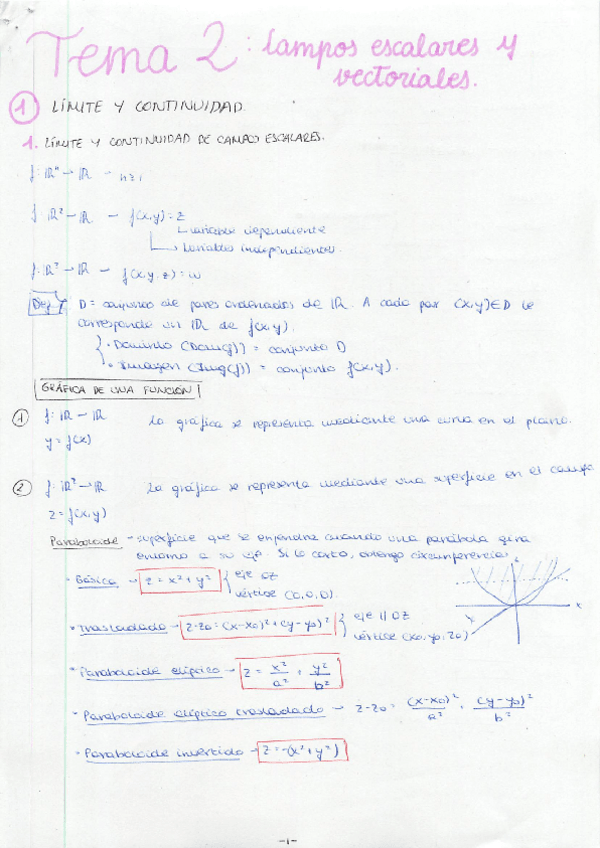 Tema 2: Campos escalares y
vectoriales.
① LÍMITE Y CONTINUIDAD.
1. LÍMITE Y CONTINUIDAD DE CAMPOS ESCALARES.
f: ℝⁿ → ℝ - n≥1
f: ℝ² → ℝ - f(x,y)=z
variable dependiente
variables independientes.
f: ℝ³ → ℝ - f(x,y,z)=w
Def D = conjunto de pares ordenados de ℝ. A cada par (x,y)∈D le
corresponde un ℝ de f(x,y).
· Dominio (Dom(f)) = conjunto D
· Imagen (Img(f)) = conjunto f(x,y).
GRÁFICA DE UNA FUNCIÓN
① f: ℝ → ℝ La gráfica se representa mediante una curva en el plano.
y = f(x)
② f: ℝ² → ℝ La gráfica se representa mediante una superficie en el campo
z = f(x,y)
Paraboloide - superficie que se engendra cuando una parábola gira
entorno a su eje. Si lo corto, obtengo circunferencias
· Básica - z = x² + y² { eje OZ
vértice (0,0,0).
· Trasladado - z-z₀ = (x-x₀)² + (y-y₀)² { eje || OZ
vértice (x₀,y₀,z₀)
z
x
y
· Paraboloide elíptico - z = x²/a² + y²/b²
· Paraboloide elíptico trasladado - z-z₀ = (x-x₀)²/a² + (y-y₀)²/b²
· Paraboloide invertido - z = -(x² + y²)
-1-